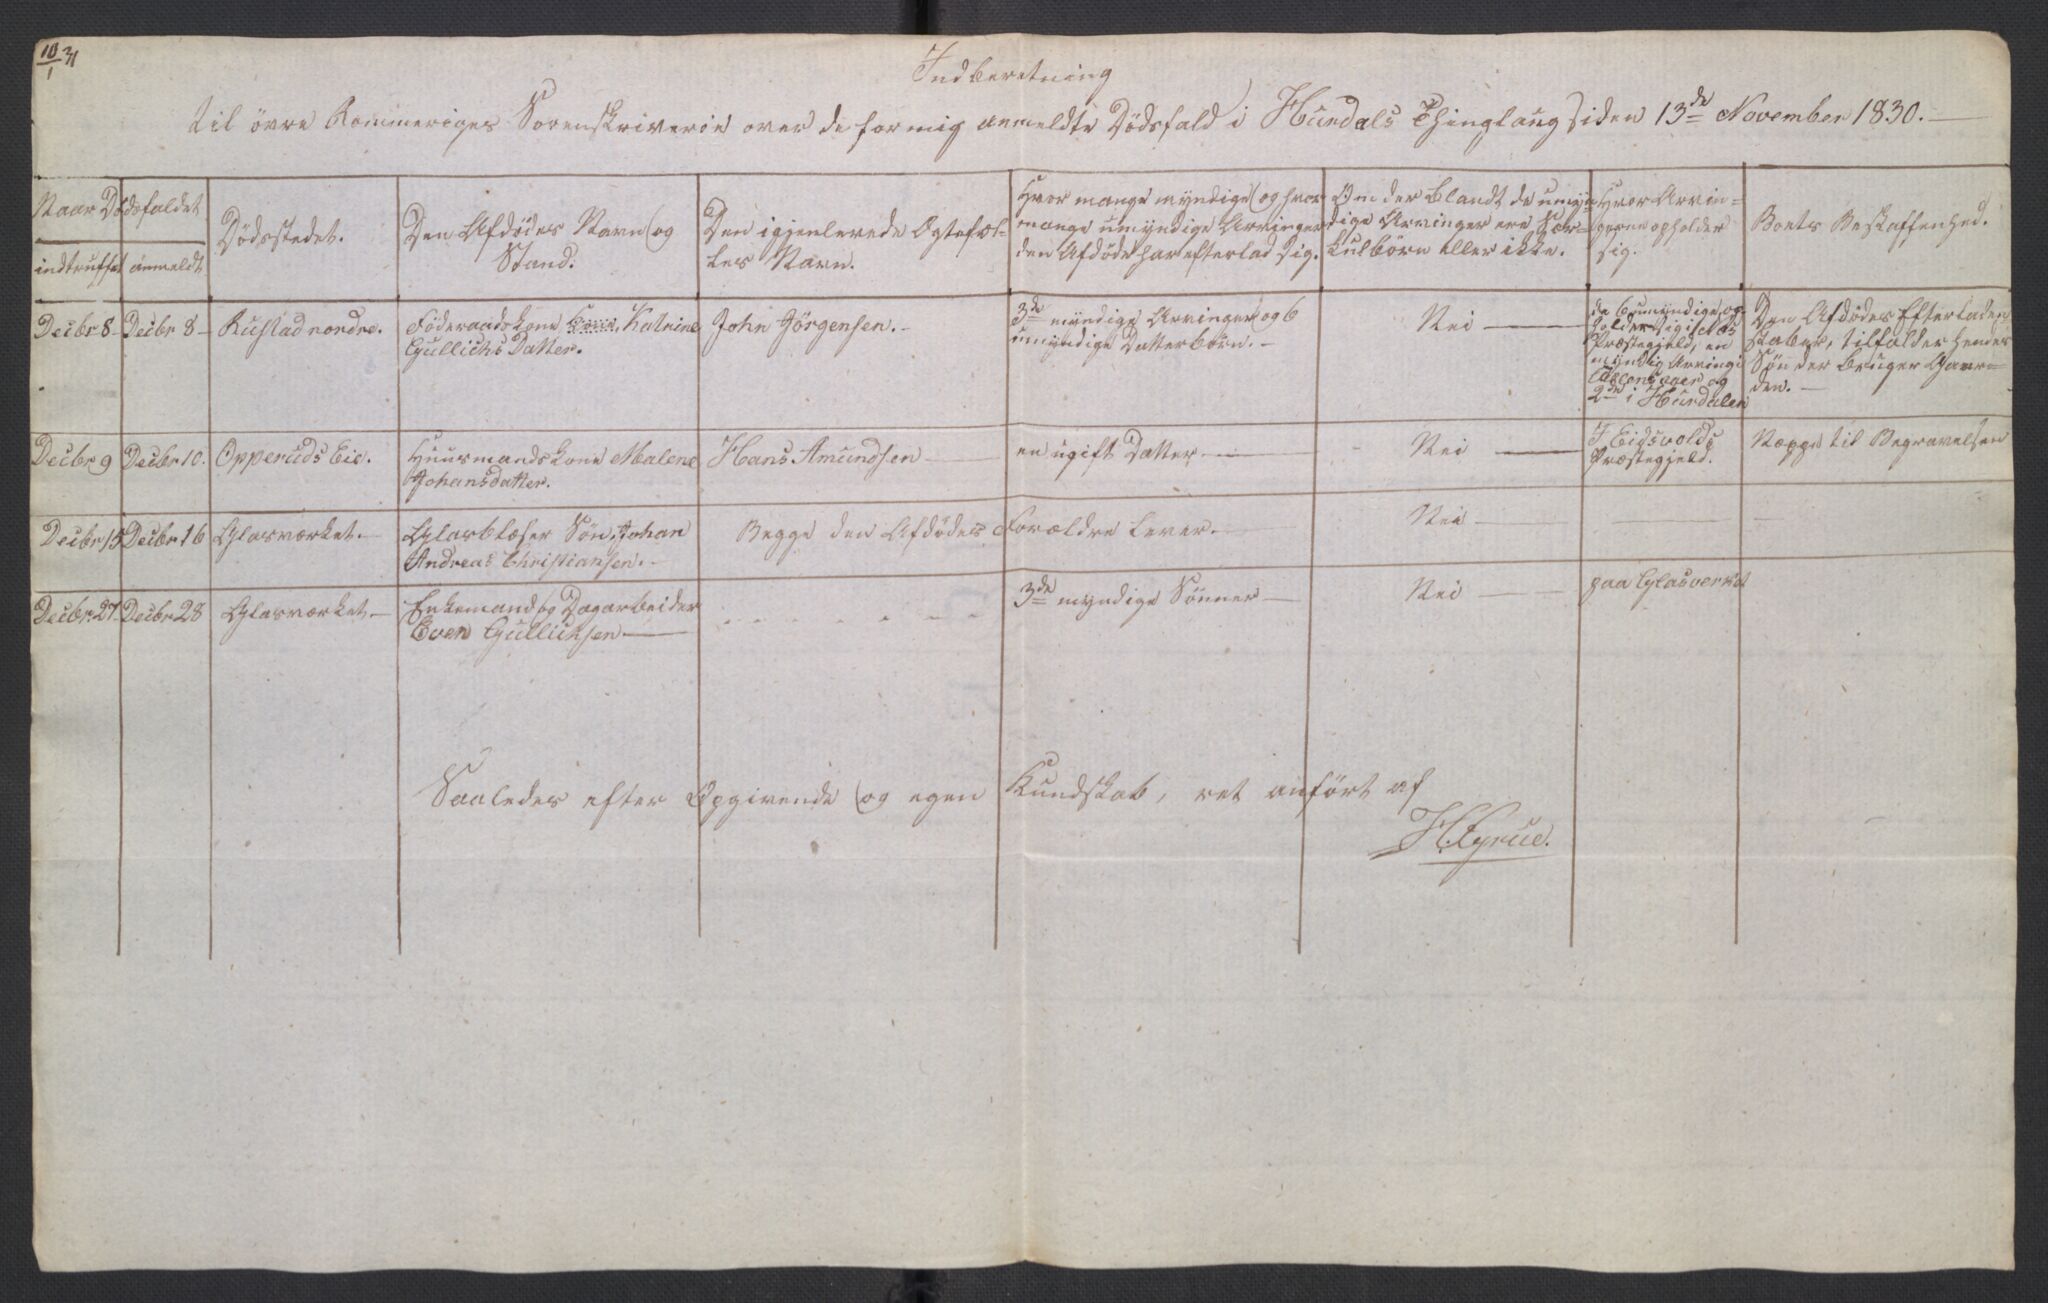 10/1 31
Indberetning
til övre Rommeriges Sorenskriverie over de for mig anmeldte Dödsfald i Hurdals Thinglaug siden 13de November 1830.
Naar Dödsfaldet
indtruffet
anmeldt
Dödsstedet.
Den Afdödes Navn og
Stand.
Den igjenlevede Egtefæl-
les Navn.
Hvor mange myndige og hvor
mange umyndige Arvinger
den Afdöde har efterlad sig.
Om der blandt de umyn
dige Arvinger ere Sær-
kulbörn eller ikke.
Hvor Arvin-
gerne opholder
sig.
Boets Beskaffenhed.
Decbr 8
Decbr 8
Rustad nordre.
Föderaadskone Katrine
Gullichs Datter.
John Jörgensen.
3de myndige Arvinger og 6
umyndige Datterbörn.
Nei
de 6 umyndige op-
holder sig i
Præstegjeld, en
myndig Arving i
Ullensager og
2de i Hurdalen
Den Afdödes Efterladen
skaber, tilfalder hendes
Søn der bruger Gaar-
den.
Decbr 9
Decbr 10.
Opperuds Eie.
Huusmandskone Malene
Johansdatter.
Hans Amundsen
en ugift Datter
Nei
I Eidsvolds
Præstegjeld.
Neppe til Begravelsen
Decbr 15
Decbr 16
Glasværket.
Glasblæser Søn, Johan
Andreas Christiansen.
Begge den Afdödes Forældre lever.
Nei
Decbr. 27
Decbr 28
Glasværket
Enkemand og Dagarbeider
Even Gullichsen
3de myndige Sönner
Nei
paa Glasverket
Saaledes efter Opgivende og egen Kundskab, ret anfört af
H. Fyrue.